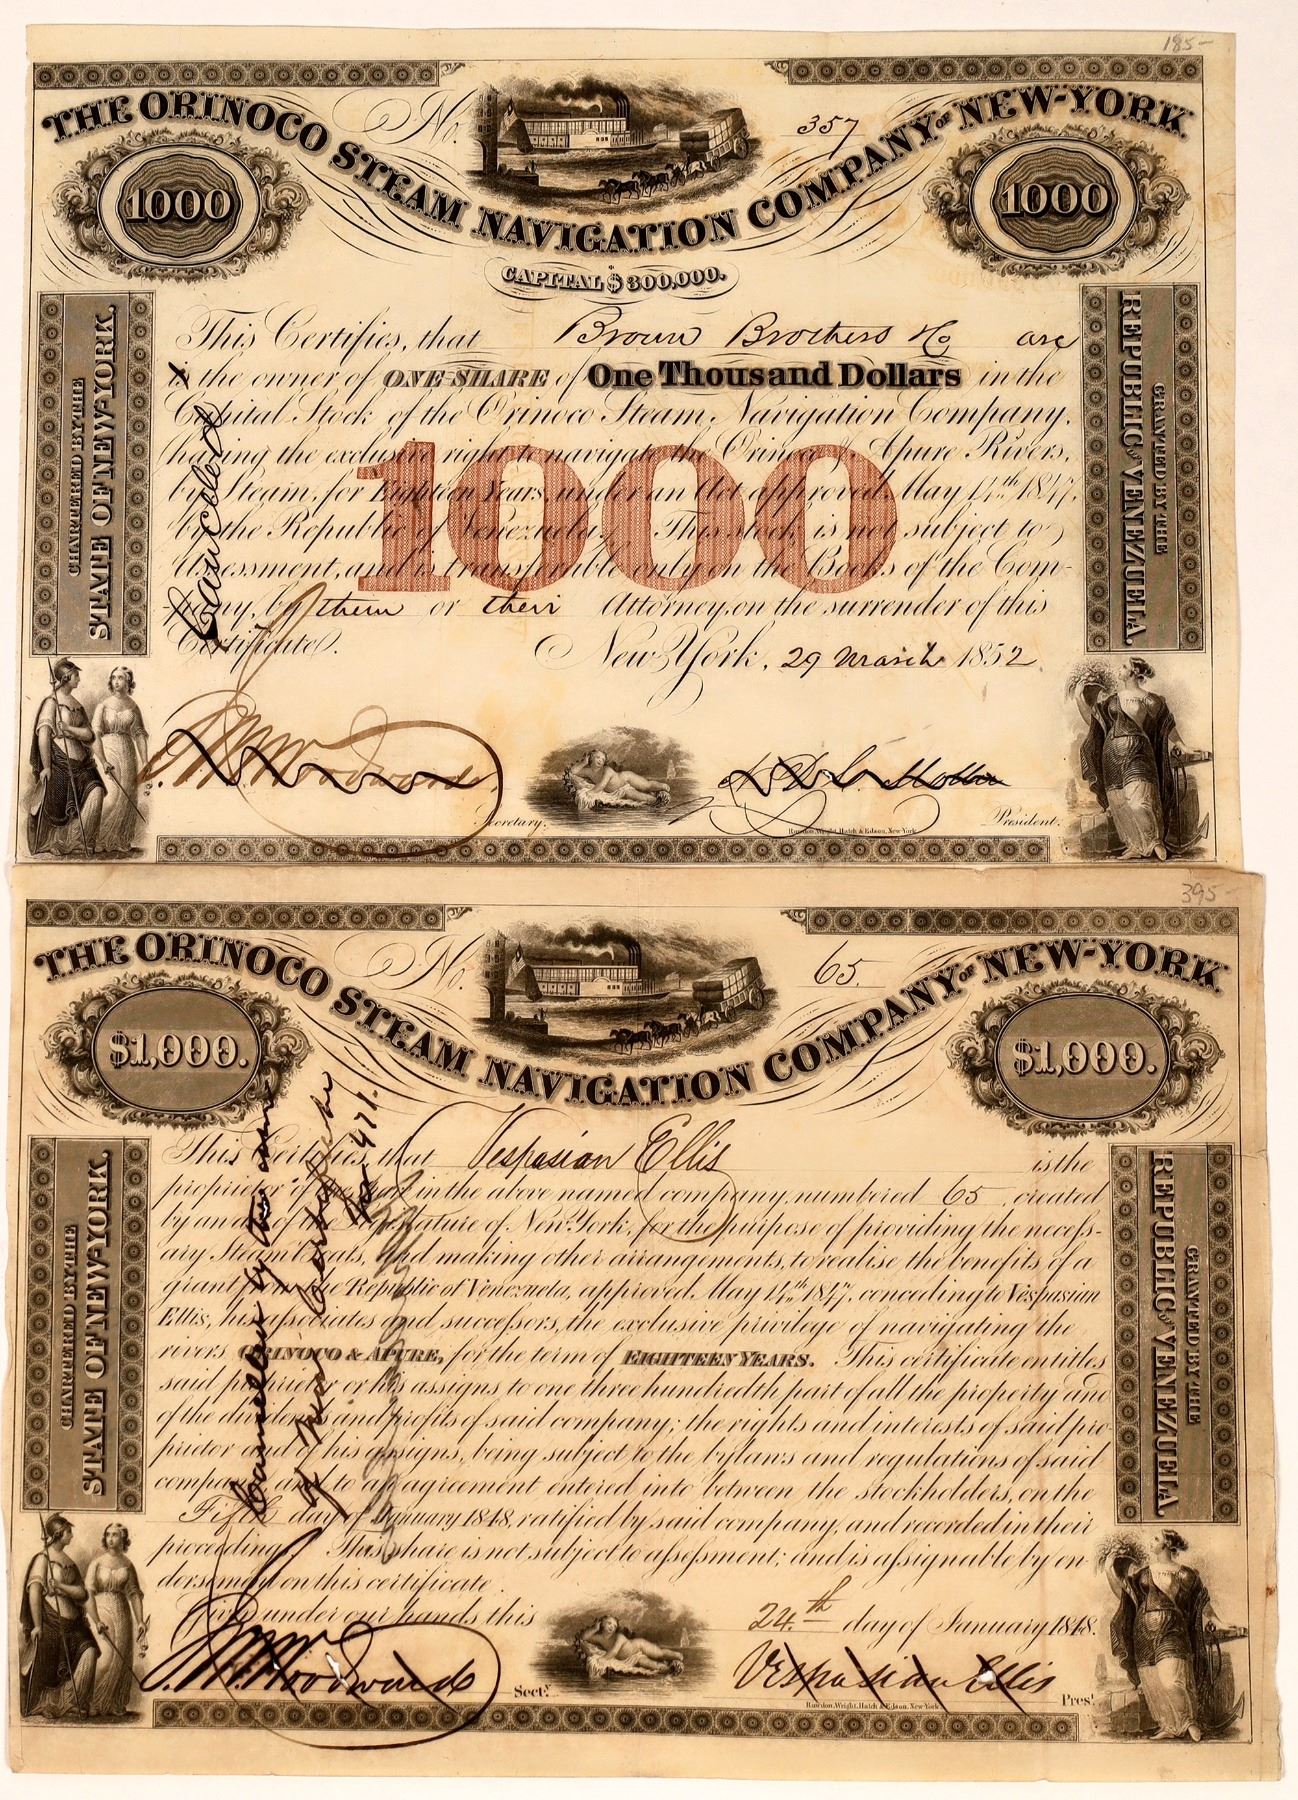 185-
THE ORINOCO STEAM NAVIGATION COMPANY OF NEW-YORK
No. 357
1000
1000
CAPITAL $300,000.
CHARTERED BY THE
STATE OF NEW-YORK.
GRANTED BY THE
REPUBLIC OF VENEZUELA.
This Certifies, that Brown Brothers & Co are
is the owner of ONE SHARE of One Thousand Dollars in the
Capital Stock of the Orinoco Steam Navigation Company,
having the exclusive right to navigate the Orinoco & Apure Rivers,
by Steam, for Eighteen Years, under an Act approved, May 14th 1847,
by the Republic of Venezuela. This stock is not subject to
Assessment, and is transferable only on the Books of the Com-
pany, by them or their Attorney, on the surrender of this
Certificate.
1000
Cancelled
New York, 29 March 1852
J. M. Woodward
Secretary.
President.
Rawdon, Wright, Hatch & Edson, New-York
395-
THE ORINOCO STEAM NAVIGATION COMPANY OF NEW-YORK
No. 65
$1,000.
$1,000.
CHARTERED BY THE
STATE OF NEW-YORK.
GRANTED BY THE
REPUBLIC OF VENEZUELA
This Certifies, that Vespasian Ellis is the
proprietor of in the above named company, numbered 65, created
by an act of the Legislature of New York, for the purpose of providing the necess-
ary Steam Boats, and making other arrangements, to realise the benefits of a
grant from the Republic of Venezuela, approved May 14th 1847, conceding to Vespasian
Ellis, his associates and successors, the exclusive privilege of navigating the
rivers ORINOCO & APURE, for the term of EIGHTEEN YEARS. This certificate entitles
said proprietor or his assigns, to one three hundredth part of all the property and
of the dividends and profits of said company; the rights and interests of said pro-
prietor and of his assigns, being subject to the bylaws and regulations of said
company, and to an agreement entered into between the stockholders, on the
Fifth day of January 1848, ratified by said company, and recorded in their
proceedings. This share is not subject to assessment; and is assignable by en-
dorsement on this certificate.
Given under our hands this 24th day of January 1848.
Cancelled by
of New Certificate
No 471.
J. M. Woodward
Secty.
Vespasian Ellis
Prest.
Rawdon, Wright, Hatch & Edson, New-York